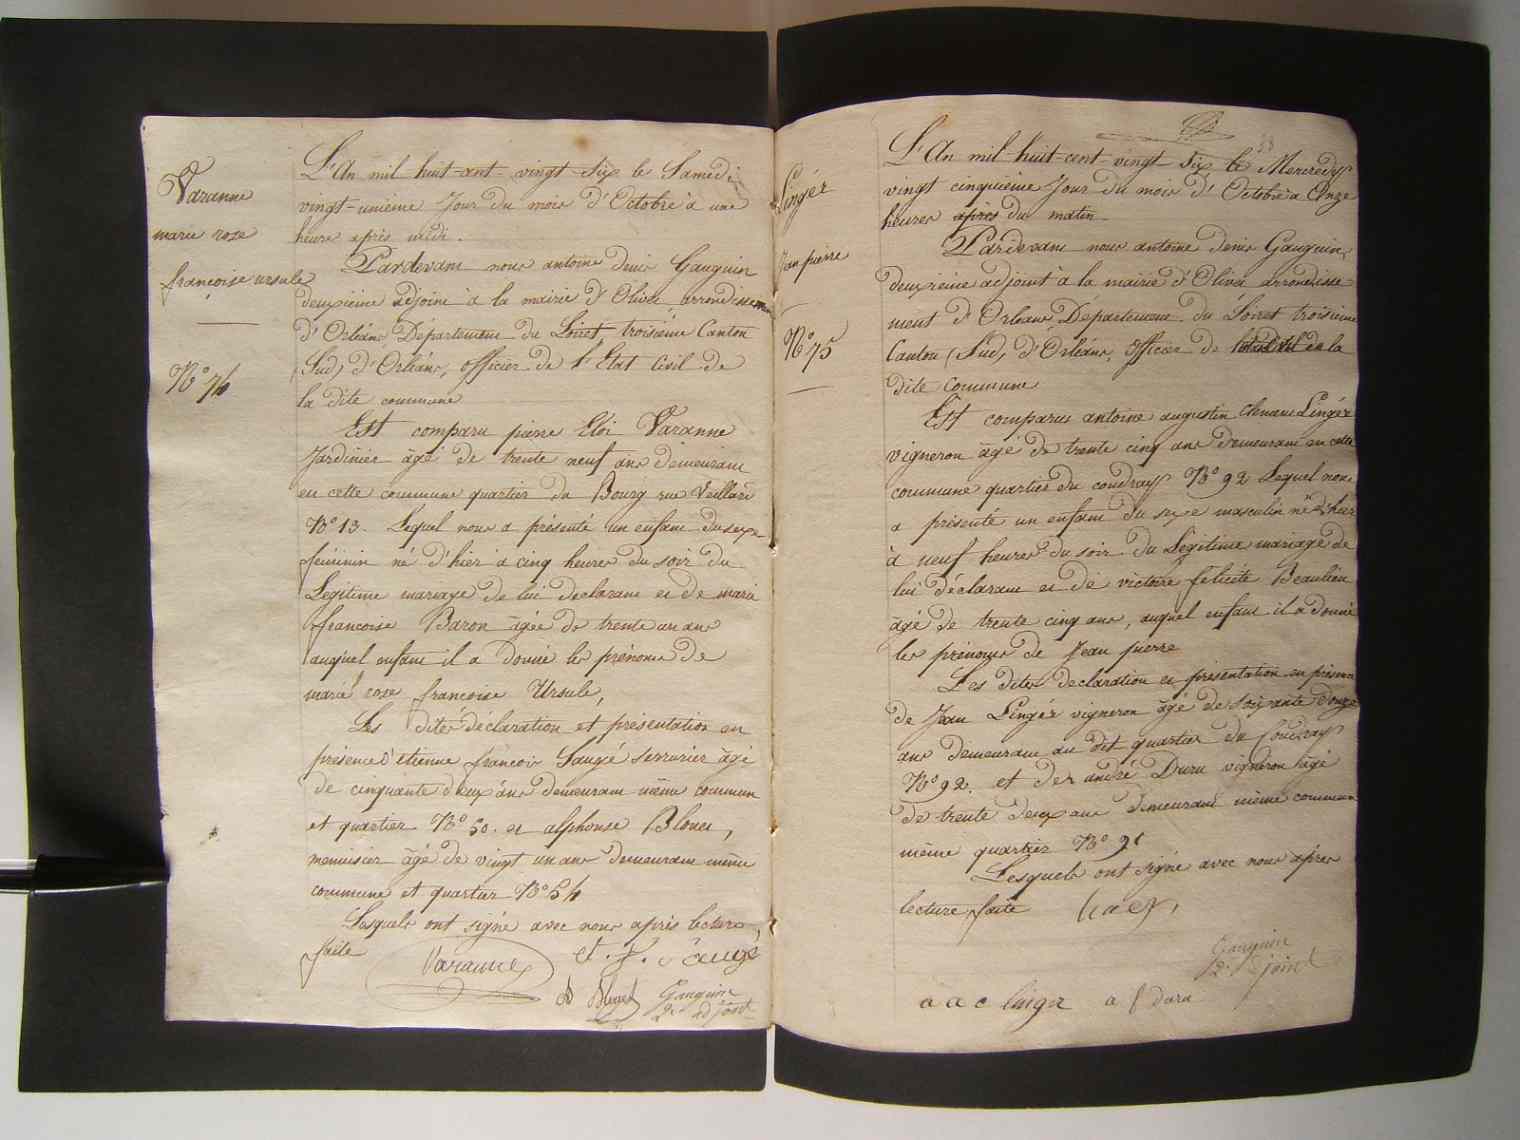 Varanne
marie rose
françoise ursule
N° 74
L'An mil huit-cent-vingt-six le Samedi
vingt-unieme Jour du mois d'Octobre à une
heure après midi.
Pardevant nous antoine denis Gauguin
deuxième adjoint à la mairie d'Olivet arrondissement
d'Orléans, Département du Loiret, troisième Canton
Sud, d'Orléans, officier de l'Etat Civil de
la dite commune
Est comparu pierre Eloi Varanne
Jardinier âgé de trente neuf ans demeurant
en cette commune quartier du Bourg rue Veillard
N° 13. Lequel nous a présenté un enfant du sexe
féminin né d'hier à cinq heures du soir du
Légitime mariage de lui déclarant et de marie
francoise Baron âgée de trente un ans
auquel enfant il a donné les prénoms de
marie rose françoise Ursule,
Les dites déclaration et présentation en
présence d'etienne françois Saugé serrurier âgé
de cinquante deux ans demeurant même commune
et quartier N° 50. et alphonse Blouet,
menuisier âgé de vingt un ans demeurant même
commune et quartier N° 54
Lesquels ont signé avec nous après lecture
faite
Varanne
et. f. Saugé
A Blouet
Gauguin
2e adjoint
Lingér
Jean pierre
N° 75
53
L'An mil-huit-cent-vingt-six le Mercredy
vingt cinquième Jour du mois d'Octobre à Onze
heures après du matin
Pardevant nous antoine denis Gauguin,
deuxième adjoint à la mairie d'Olivet arrondisse
ment d'Orléans, Département du Loiret troisième
Canton (Sud) d'Orléans, officier de l'état civil en la
dite commune
Est comparu antoine augustin Lingér
vigneron âgé de trente cinq ans demeurant en cette
commune quartier du coudray N° 92 Lequel nous
a présenté un enfant du sexe masculin né d'hier
à neuf heures du soir du Légitime mariage de
lui déclarant et de victoire félicité Beaulieu
âgé de trente cinq ans, auquel enfant il a donné
les prénoms de Jean pierre
Les dites déclaration et présentation en présence
de Jean Lingér vigneron âgé de soixante douze
ans demeurant au dit quartier du Coudray
N° 92. et de andré Duru vigneron âgé
de trente deux ans demeurant même commune
même quartier N° 91
Lesquels ont signé avec nous après
lecture faite
Gauguin
2e adjoint
a a c linger a f duru